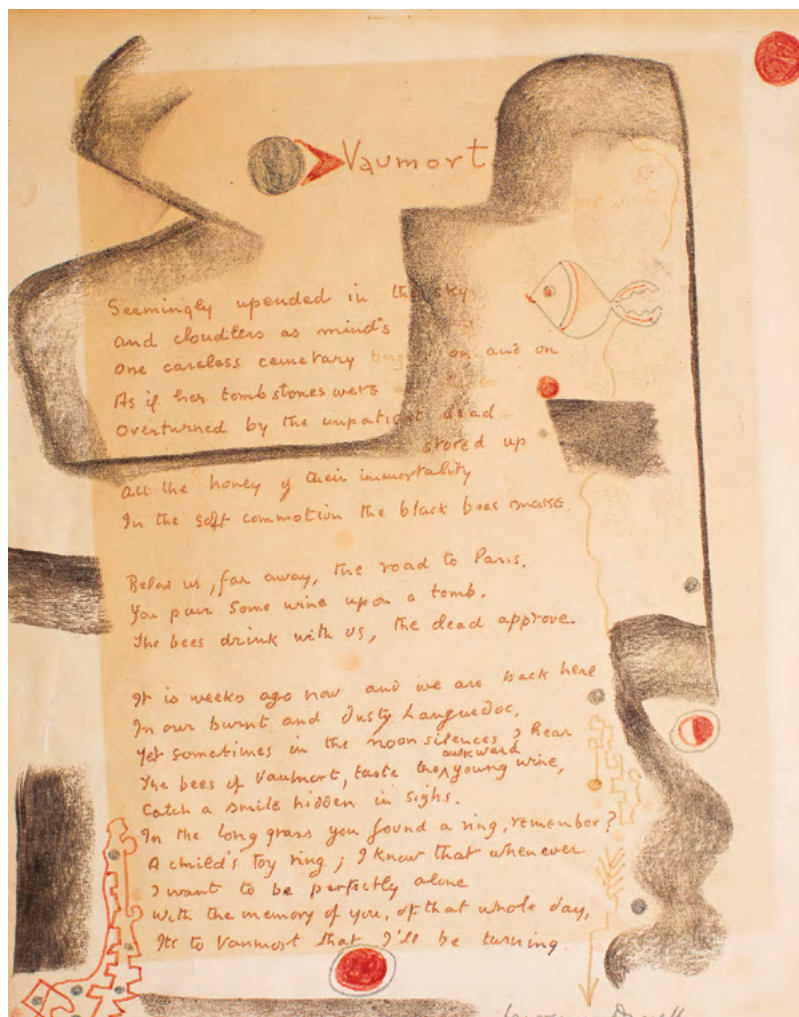 Vaumort
Seemingly upended in the sky
and cloudless as mind's
one careless cemetary on and on
As if her tombstones were
overturned by the impatient dead -
stored up
All the honey of their immortality
In the soft commotion the black bees make.
Below us, far away, the road to Paris.
You pour some wine upon a tomb.
The bees drink with us, the dead approve.
It is weeks ago now and we are back here
In our burnt and dusty Languedoc,
Yet sometimes in the noon silences I hear
The bees of Vaumort, taste the awkward young wine,
Catch a smile hidden in sighs.
In the long grass you found a ring, remember?
A child's toy ring; I know that whenever
I want to be perfectly alone
With the memory of you, of that whole day,
Its to Vaumort that I'll be turning.